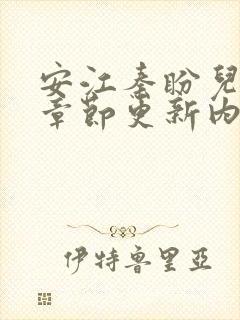 安江秦盼兒
章節更新內
伊特魯里亞